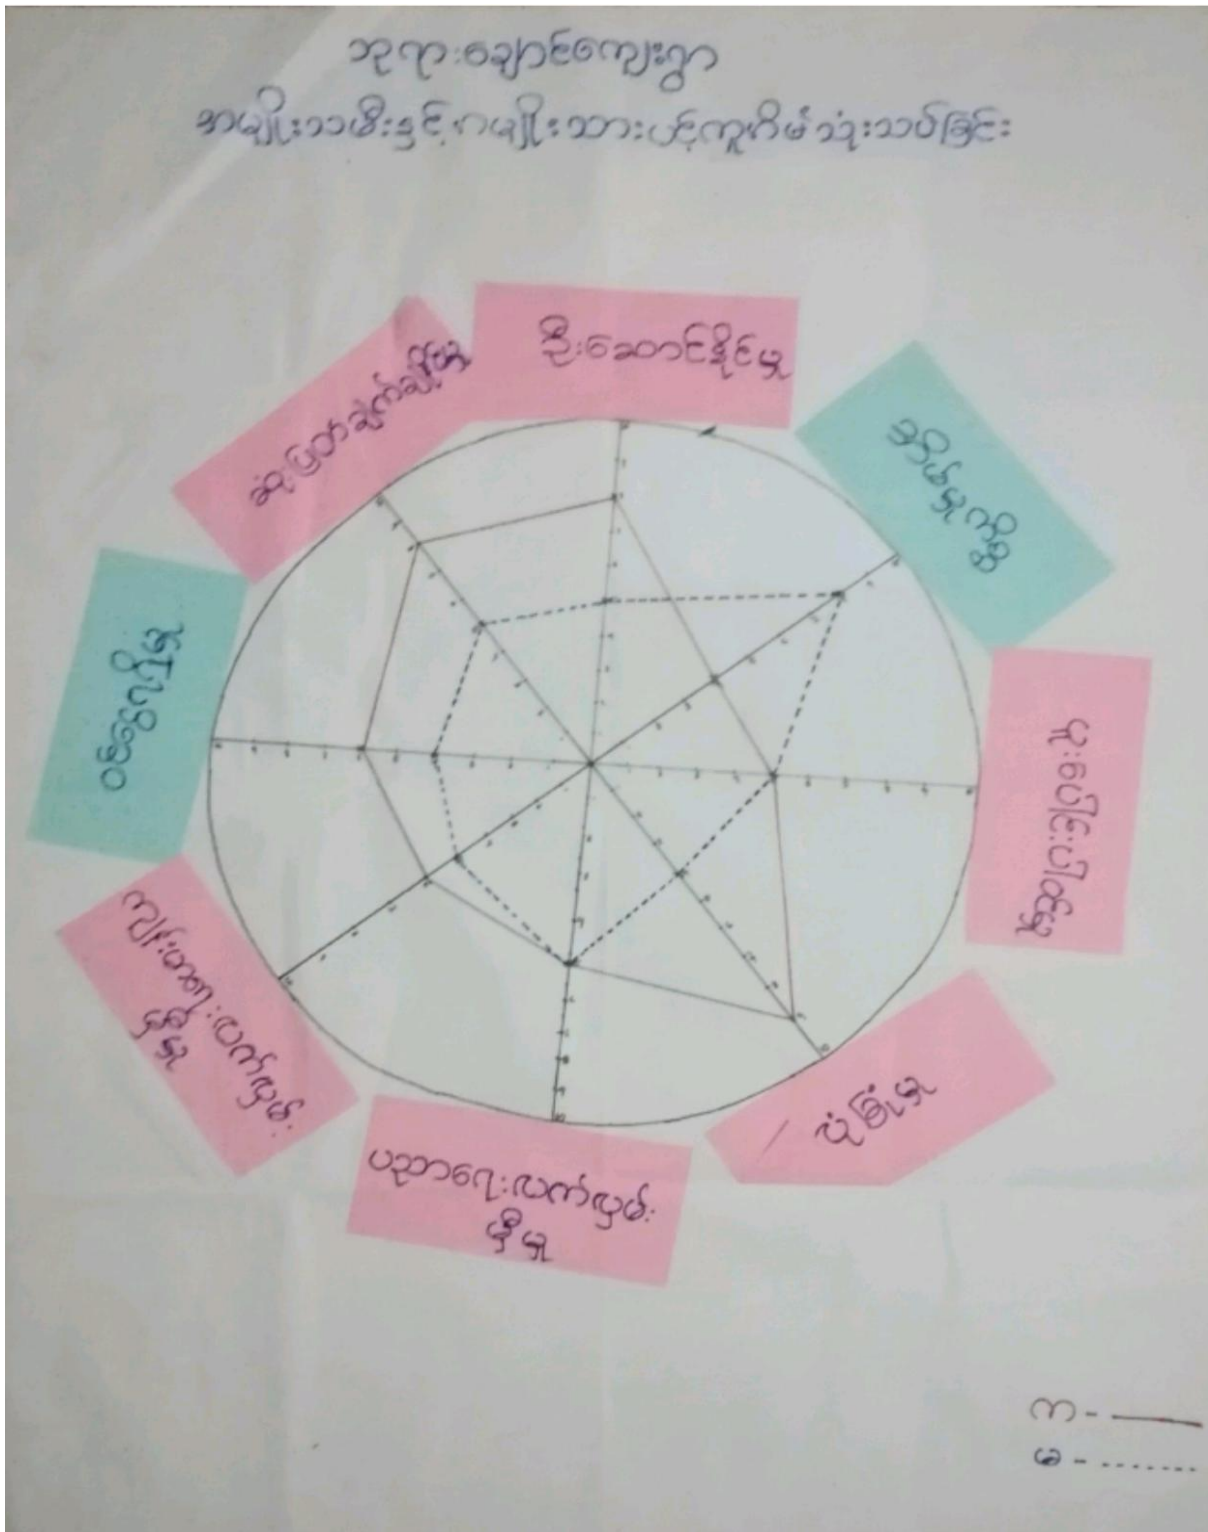 ဘုရားချောင်ကျေးရွာ
အမျိုးသမီးနှင့် အမျိုးသားပင့်ကူဂိမ်းသုံးသပ်ခြင်း
ဦးဆောင်နိုင်မှု
အိမ်မှုကိစ္စ
ပူးပေါင်းပါဝင်မှု
ယုံကြုံမှု
ပညာရေးလက်လှမ်း
မှီမှု
ကျန်းမာရေးလက်လှမ်း
မှီမှု
ဝင်ငွေ
ဆုံးဖြတ်ချက်ချနိုင်မှု
က - 
မ -